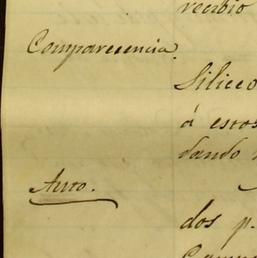 recibio
Comparecencia.
Siliceo
á estos
dando
Auto.
dos p.